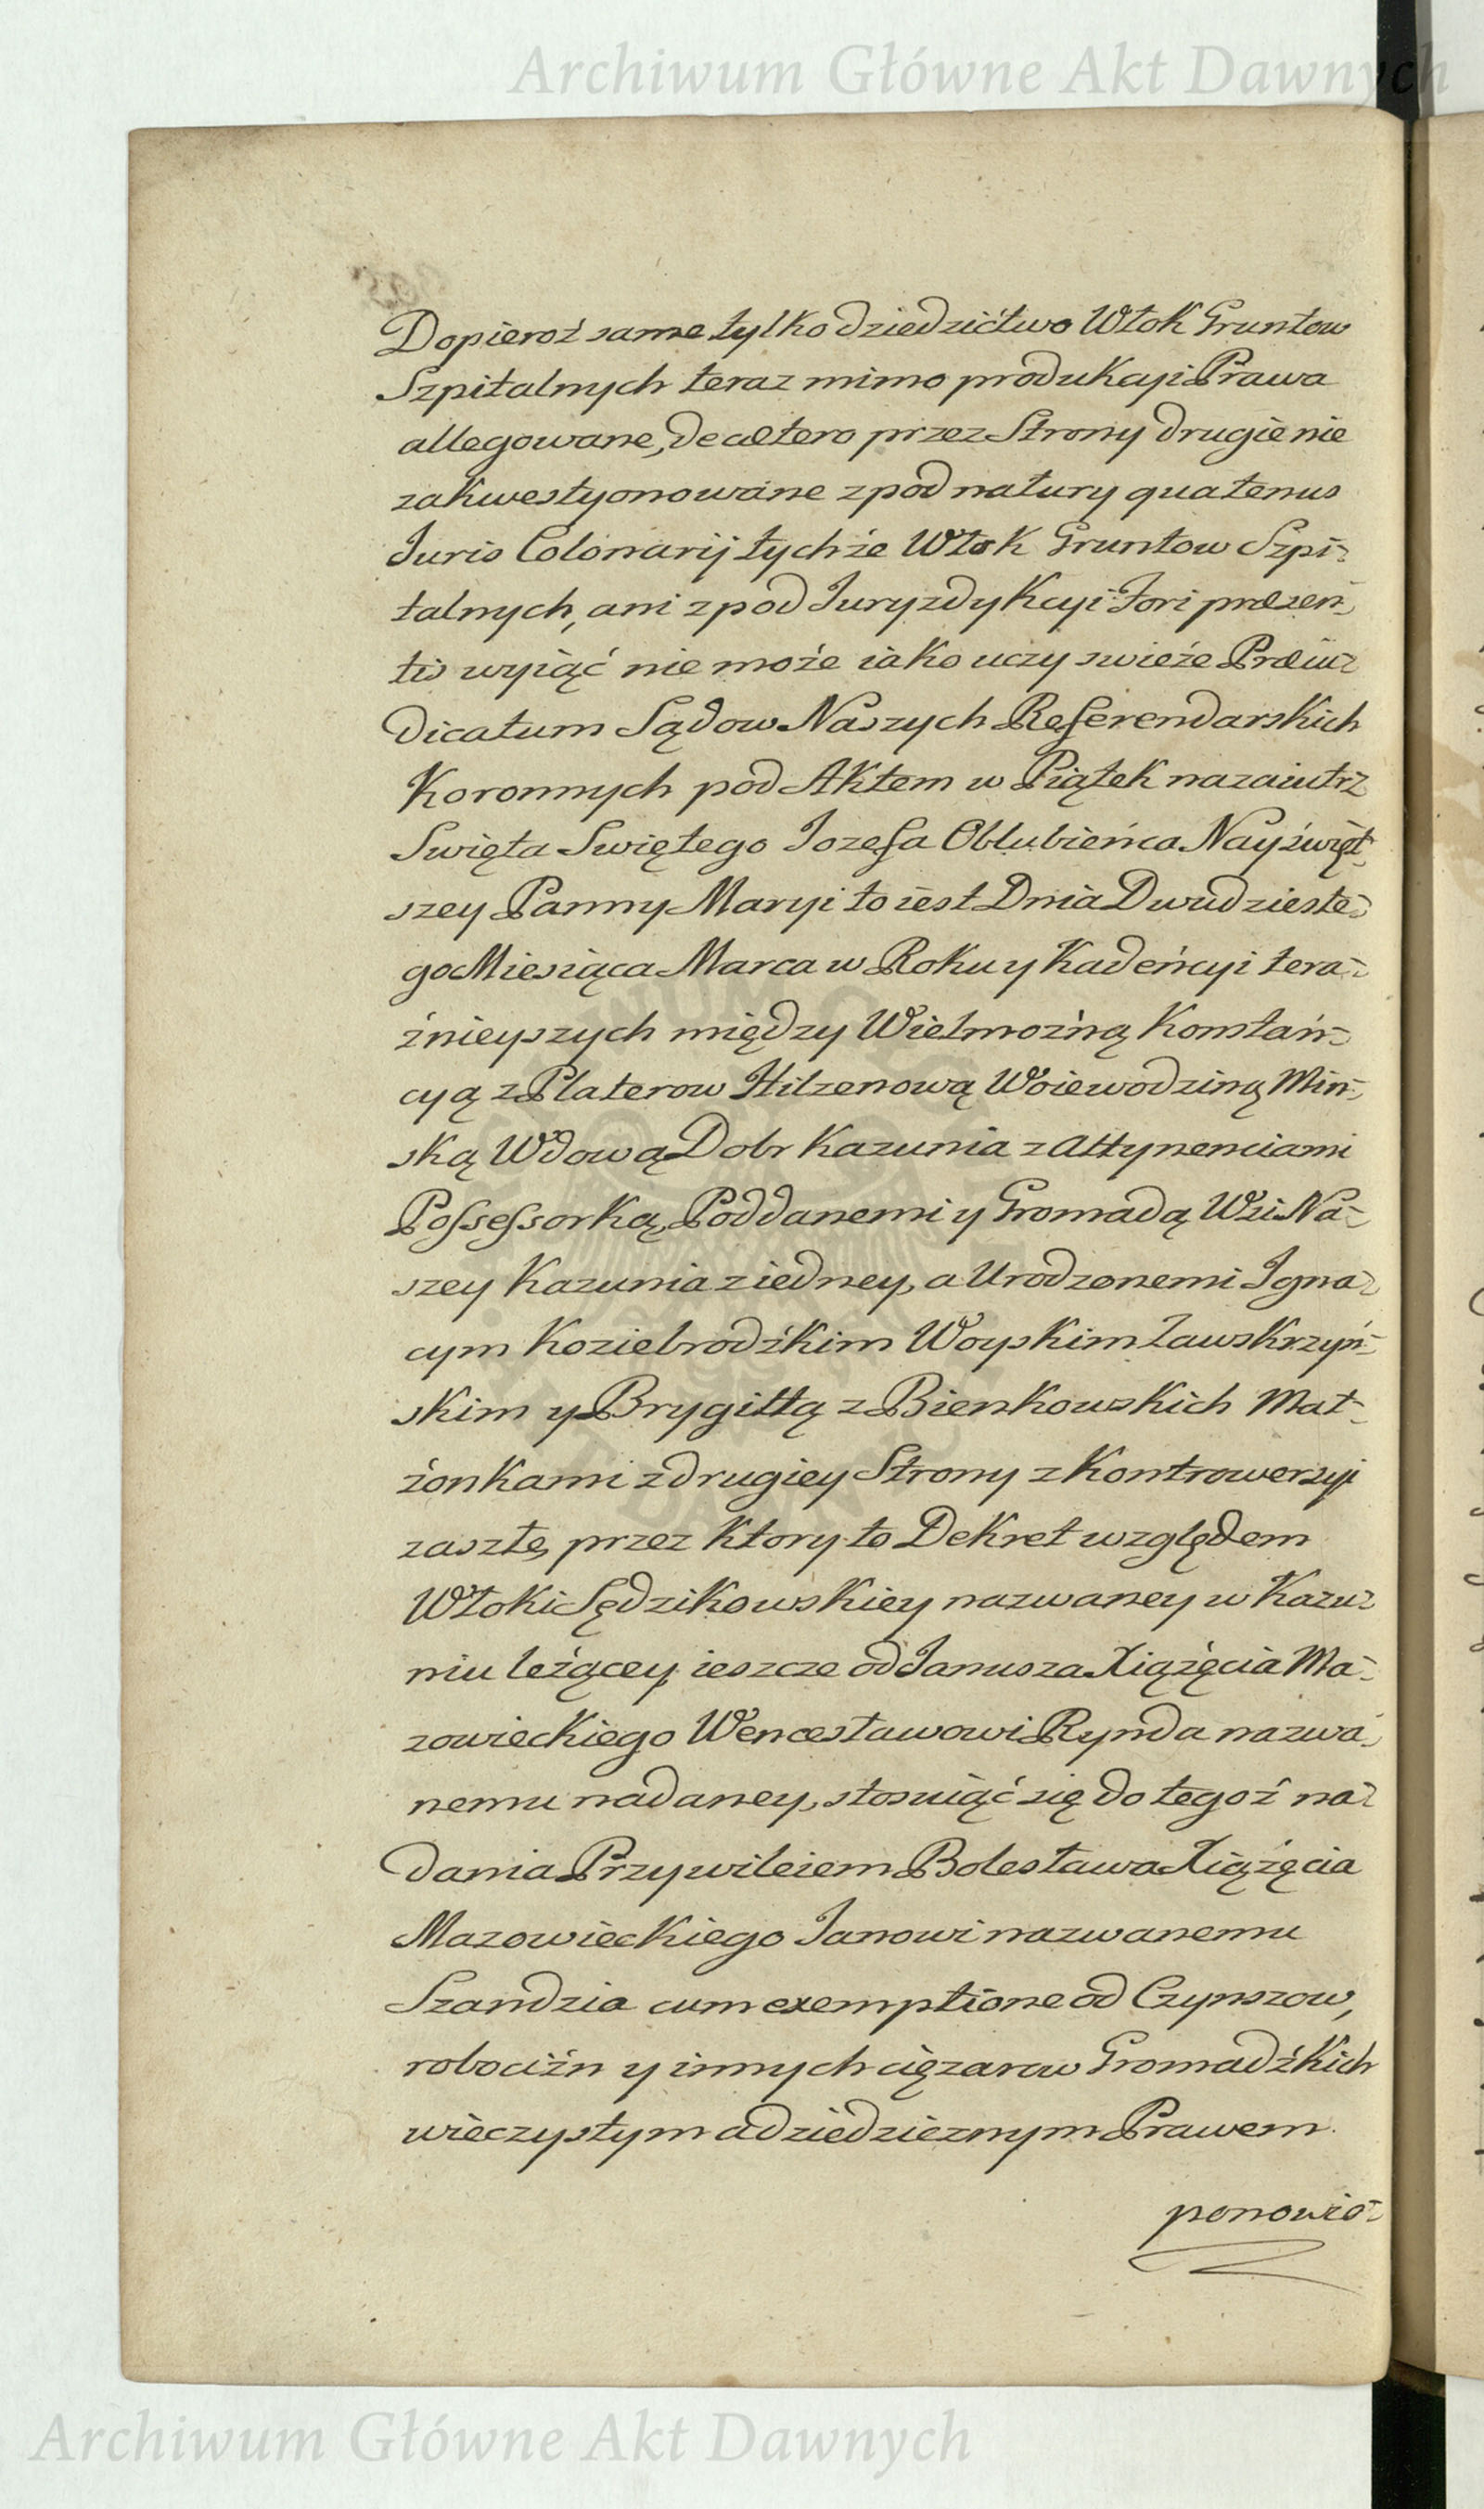 Archiwum Główne Akt Dawnych
Dopieroż same tylko dziedzictwo Włok Gruntow
Szpitalnych teraz mimo produkcyi Prawa
allegowane, de cætero przez Strony drugie nie
zakwestyonowane z pod natury quatenus
Juris Colonarij tychże Włok Gruntow Szpi-
talnych, ani z pod Juryzdykcyi Fori præsen-
tis wyiąć nie może iako uczy swieże Præiu-
dicatum Sądow Naszych Referendarskich
Koronnych pod Aktem w Piątek nazaiutrz
Swięta Swiętego Jozefa Oblubieńca Nayświęt-
szey Panny Maryi to iest Dnia Dwudzieste-
go Miesiąca Marca w Roku y Kadencyi tera-
źnieyszych między Wielmożną Konstan-
cyą z Platerow Hilzenową Woiewodziną Min-
ską Wdową Dobr Kazunia z Attynenciami
Possessorką, Poddanemi y Gromadą Wsi Na-
szey Kazunia z iedney, a Urodzonemi Igna-
cym Koziebrodzkim Woyskim Zawskrzyń-
skim y Brygittą z Bienkowskich Mał-
żonkami z drugiey Strony z Kontrowersyi
zaszłe, przez ktory to Dekret względem
Włoki Sędzikowskiey nazwaney w Kazu-
niu leżącey, ieszcze od Janusza Xiążęcia Ma-
zowieckiego Wencesławowi Rynda nazwa-
nemu nadaney, stosuiąć się do tegoż na-
dania Przywileiem Bolesława Xiążęcia
Mazowieckiego Janowi nazwanemu
Szandzia cum exemptione od Czynszow,
robocizn y innych ciężarow Gromadźkich
wieczystym a dziedzicznym Prawem
ponowio-
Archiwum Główne Akt Dawnych